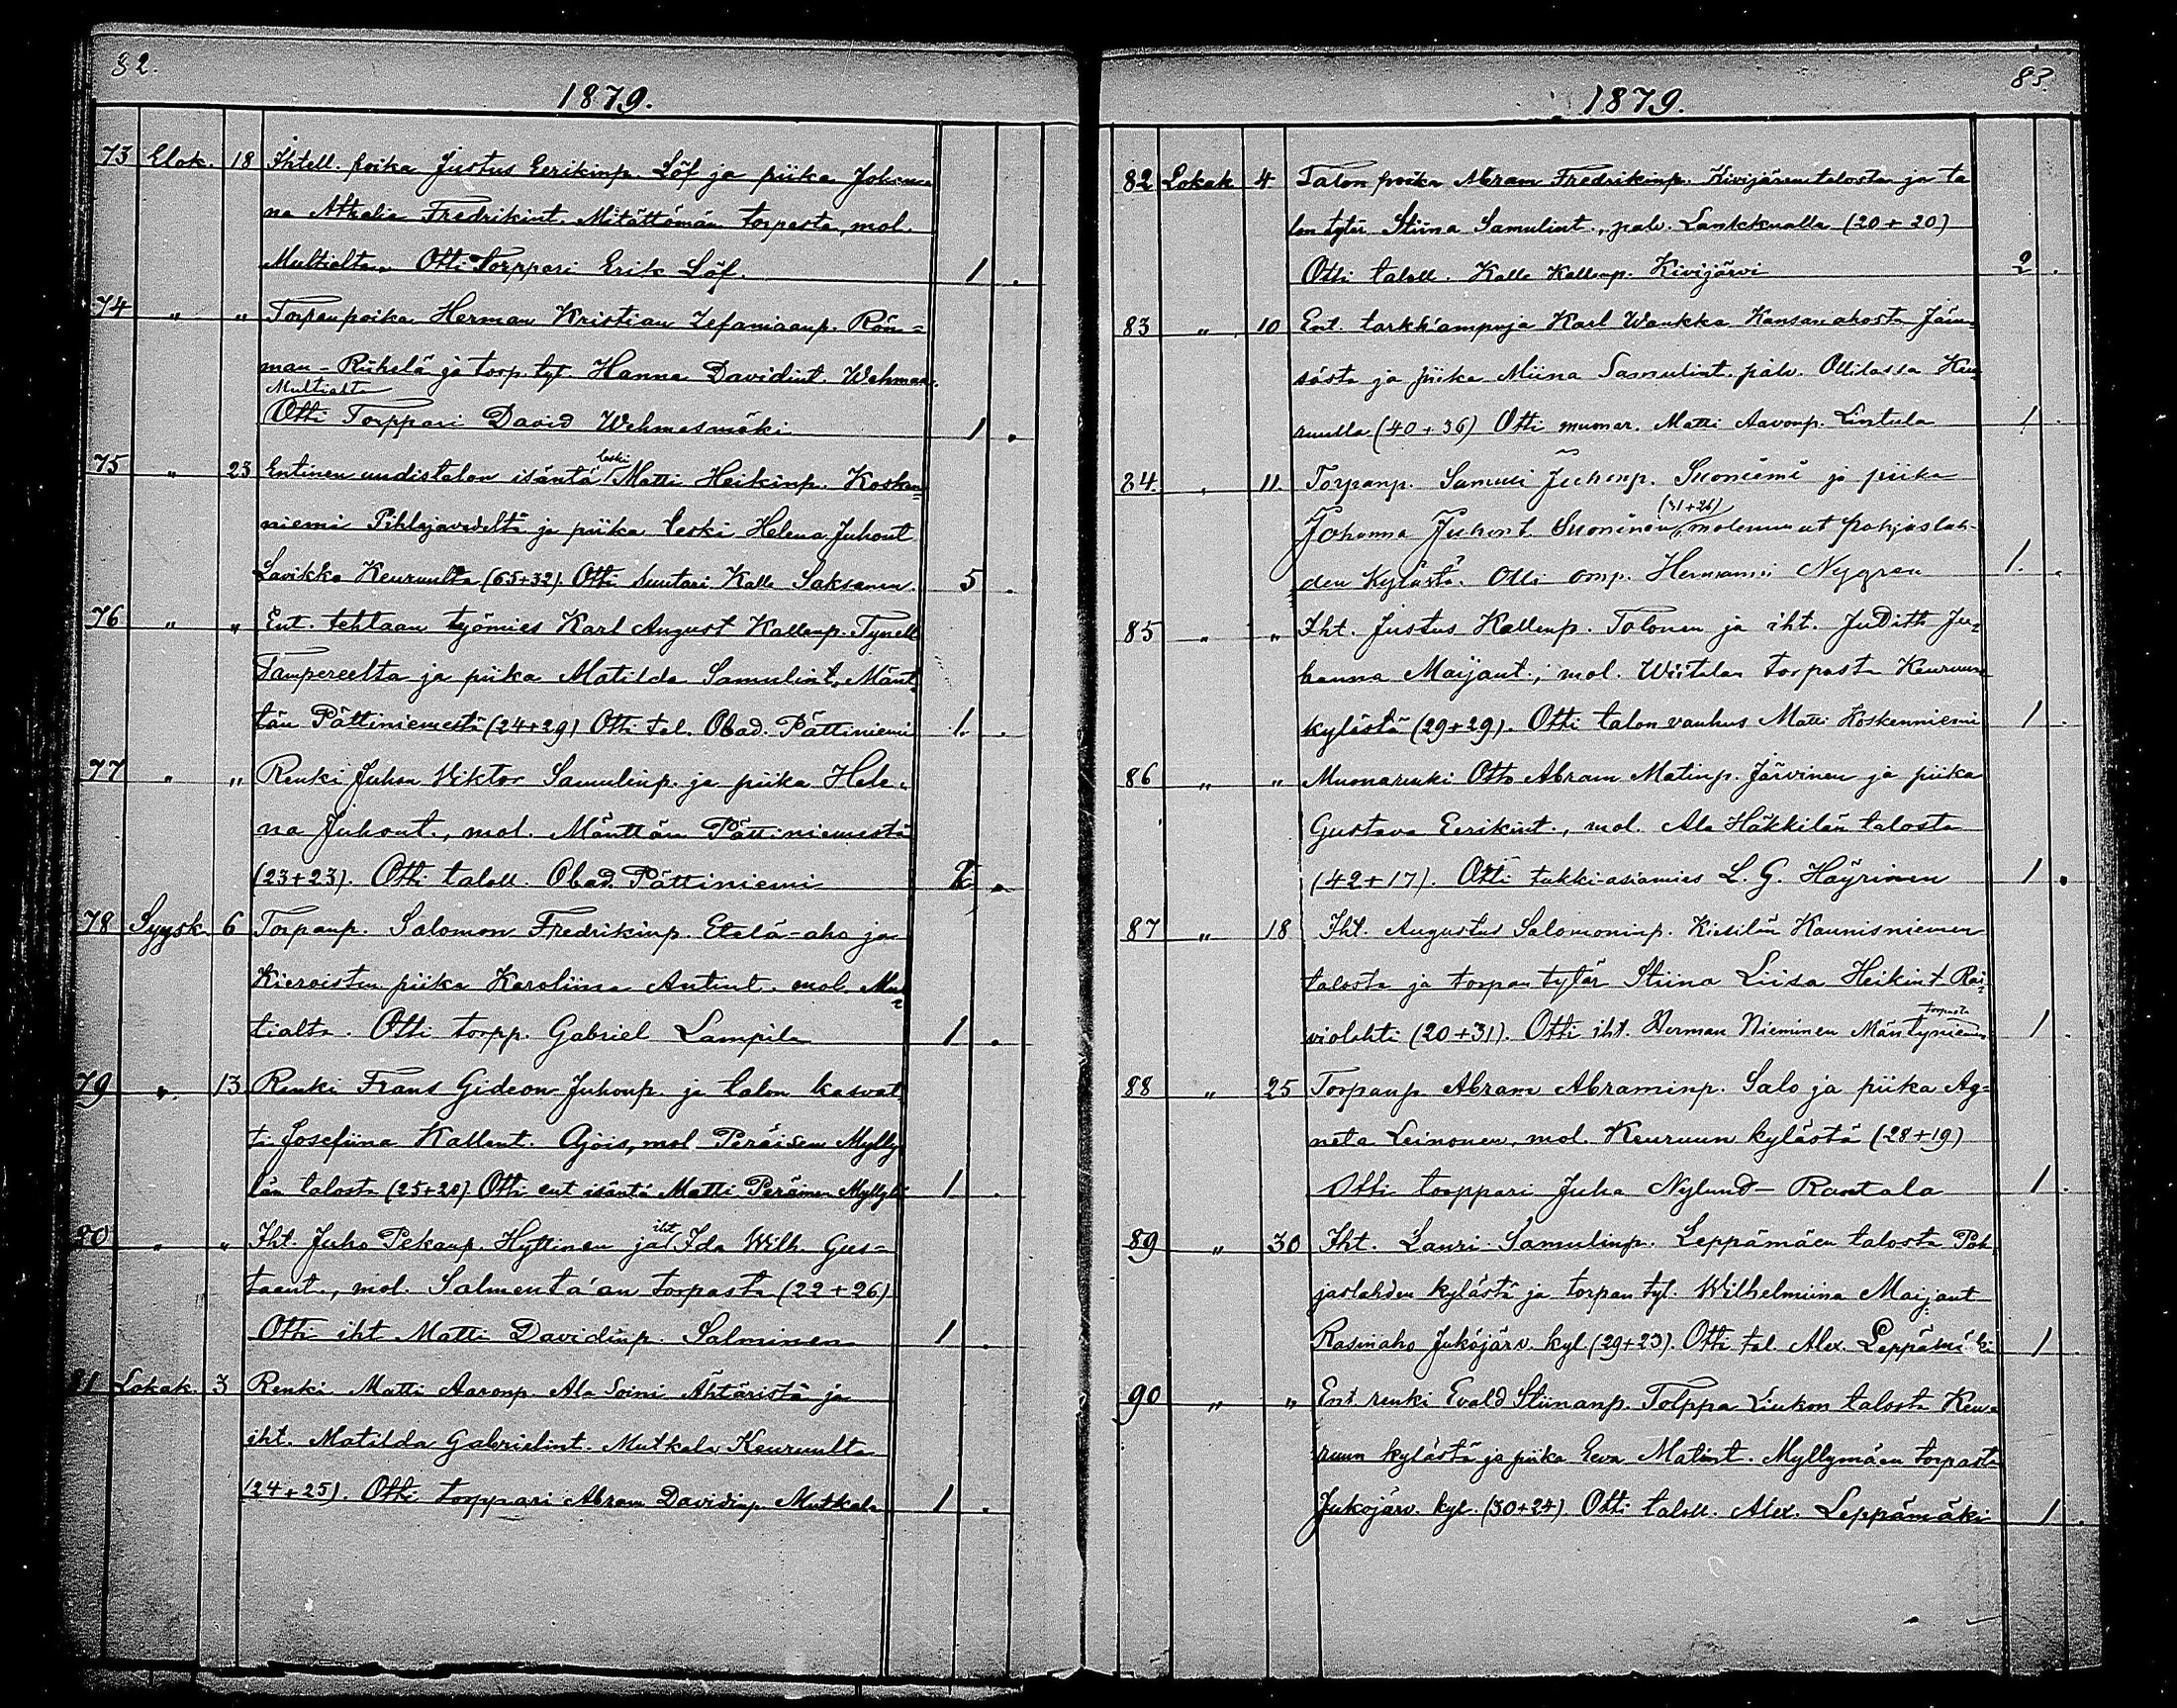 82.
1879.
73 Elok. 18 Ihtell. poika Justus Eerikinp. Löf ja piika Johan-
na Athalia Fredrikint. Mitättömän torpasta, mol.
Multialta. Otti Torppari Erik Löf. 1.
74 " " Torpanpoika Herman Kristian Zefaniaanp. Rön=
man-Riihelä ja torp. tyt. Hanna Davidint. Wehmas.
Multialta
Otti Torppari David Wehmasmäki 1.
75 " 23 Entinen uudistalon isäntä leski Matti Heikinp. Kosken=
niemi Pihlajavedeltä ja piika leski Helena Juhont
Lavikko Keuruulta (65+32). Otti suutari Kalle Saksanen. 5.
76 " " Ent. tehtaan työmies Karl August Kallenp. Tynell
Tampereelta ja piika Matilda Samulint., Mänt=
tän Pättiniemestä (24+29) Otti tal. Obad. Pättiniemi 1.
77 " " Renki Juhan Viktor Samulinp. ja piika Hele-
na Juhont., mol. Mänttän Pättiniemestä
(23+23). Otti taloll. Obad. Pättiniemi
78 Syysk. 6 Torpanp. Salomon Fredrikinp. Etelä-aho ja
Kieroisten piika Karoliina Antint. mol. Mul=
tialta. Otti torpp. Gabriel Lampila 1.
79 " 13 Renki Frans Gideon Juhonp. ja talon kasvat
ti Josefiina Kallent. Ajois, mol Peräisen Mylly
län talosta (25+20) Otti ent isäntä Matti Peräinen Myllylä 1.
80 " " Iht. Juho Pekanp. Hyttinen ja iht. Ida Wilh. Gus=
taant., mol. Salmenta'an torpasta (22+26)
Otti iht Matti Davidinp. Salminen 1.
81 Lokak. 3 Renki Matti Aaronp. Ala Soini Ähtäristä ja
iht. Matilda Gabrielint. Mutkala Keuruulta
(24+25). Otti torppari Abram Davidinp. Mutkala 1.
83.
1879.
82 Lokak 4 Talon poika Abram Fredrikinp. Kivijärven talosta ja ta
lon tytär Stiina Samulint., palv. Lankkualla (20+20)
Otti taloll. Kalle Kallenp. Kivijärvi 2.
83 " 10 Ent. tarkk'ampuja Karl Waukka Kansanahosta Jäm=
säsä ja piika Miina Samulint. palv. Ollilassa Keu
ruulla (40+36) Otti muonar. Matti Aavonp. Lintula 1.
84. " 11. Torpanp. Samuli Juhonp. Suoniemi ja piika
Johanna Juhont Suoninen, (31+26) molemmat Pohjaslah-
den Kylästä. Otti omp. Hermanni Nygren 1.
85 " " Iht. Justus Kallenp. Tolonen ja iht. Judith Ju=
hanna Maijant.; mol. Wiitalan torpasta Keuruun
kylästä (29+29). Otti talon vanhus Matti Koskenniemi 1.
86 " " Muonarenki Otto Abram Matinp. Järvinen ja piika
Gustava Eerikint., mol. Ala Häkkilän talosta
(42+17). Otti tukki-asiamies L. G. Häyrinen 1.
87 " 18 Iht. Augustus Salomoninp. Kiesilän Kaunisniemen
talosta ja torpan tytär Stiina Liisa Heikint. Rai=
violahti (20+31). Otti iht. Herman Nieminen Mäntyniemen torpasta 1.
88 " 25 Torpanp Abram Abraminp. Salo ja piika Ag=
neta Leinonen, mol. Keuruun kylästä (28+19)
Otti torppari Juha Nylund-Rantala 1.
89 " 30 Iht. Lauri Samulinp. Leppämäen talosta Poh
jaslahden kylästä ja torpan tyt. Wilhelmiina Maijant
Rasinaho Jukojärv. kyl. (29+23). Otti tal. Alex. Leppämäki 1.
90 " " Ent renki Evald Stiinanp. Tolppa Liukon talosta Keu=
ruun kylästä ja piika Eeva Matint. Myllymäen torpasta
Jukojärv. kyl. (30+24). Otti taloll. Alex. Leppämäki 1.